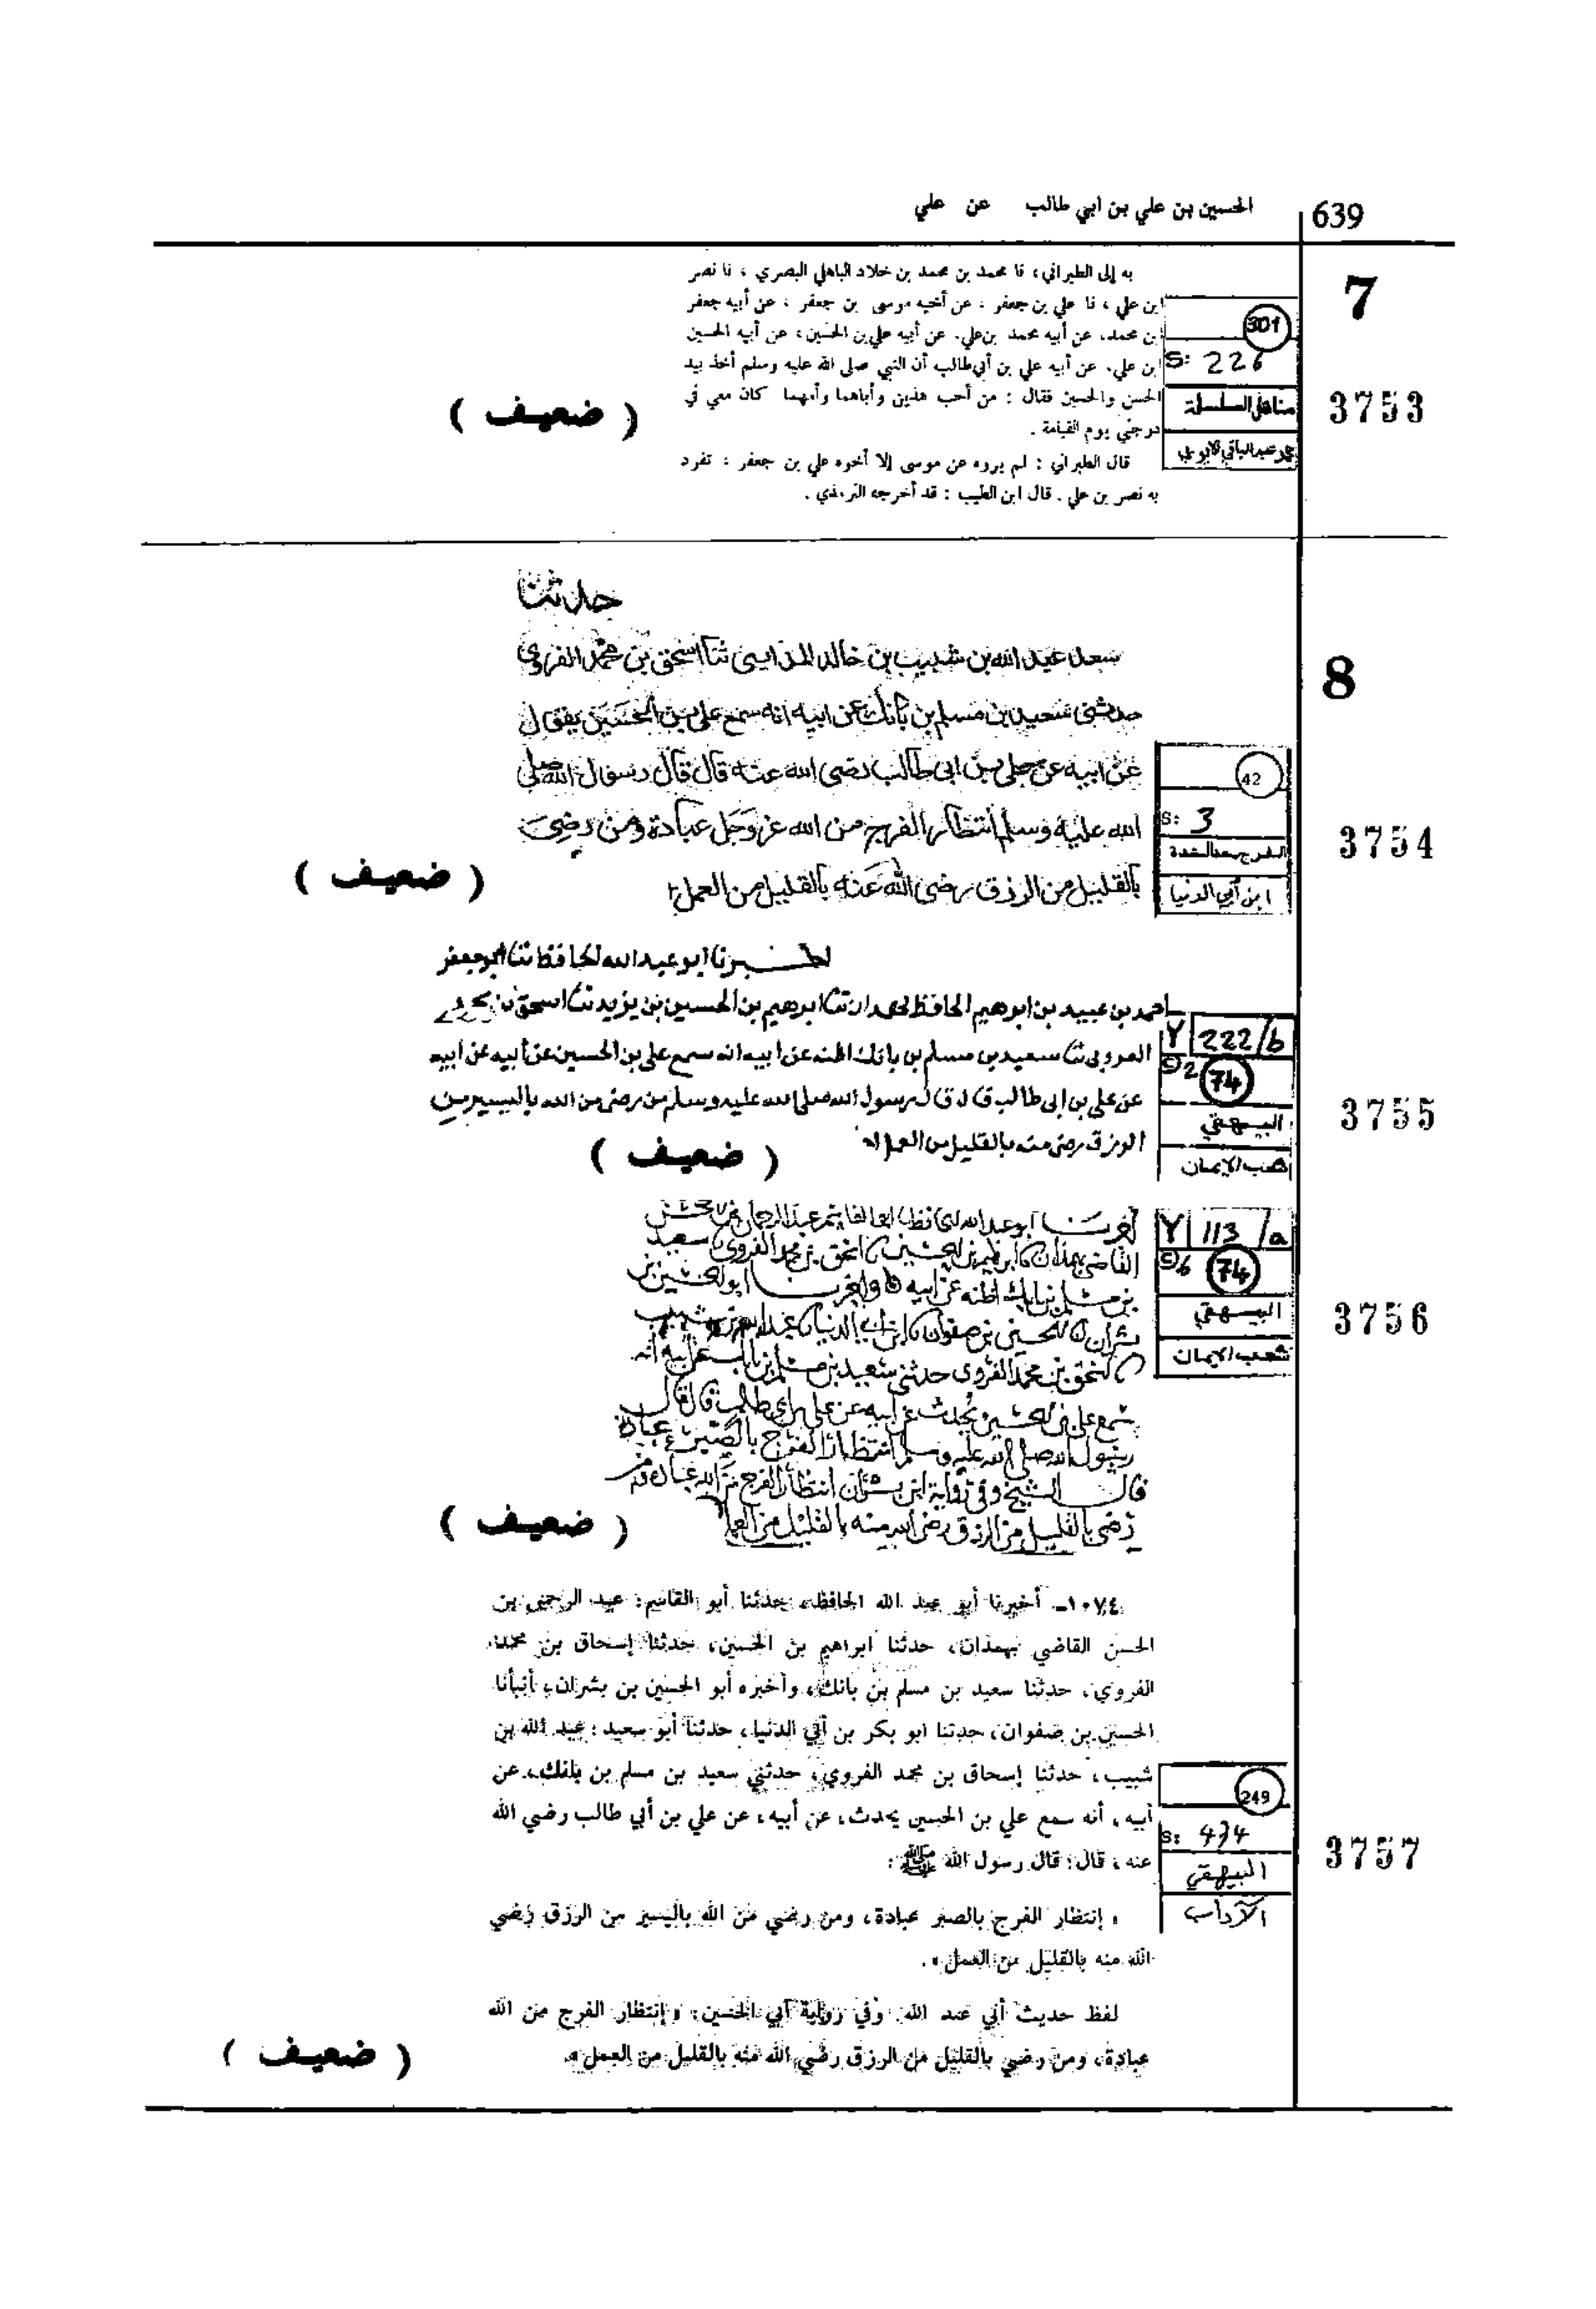 639
الحسين بن علي بن ابي طالب عن علي
7
به إلى الطبراني، نا محمد بن محمد بن خلاد الباهلي البصري، نا نصر
ابن علي، نا علي بن جعفر، عن أخيه موسى بن جعفر، عن أبيه جعفر
ابن محمد، عن أبيه محمد بن علي، عن أبيه علي بن الحسين، عن أبيه الحسين
ابن علي، عن أبيه علي بن أبي طالب أن النبي صلى الله عليه وسلم أخذ بيد
الحسن والحسين فقال : من أحب هذين وأباهما وأمهما كان معي في
درجتي يوم القيامة .
قال الطبراني : لم يروه عن موسى إلا أخوه علي بن جعفر : تفرد
به نصر بن علي . قال ابن الطيب : قد أخرجه الترمذي .
( ضعيف )
301
S: 226
مناهل السلسلة
محمد عبد الباقي الايوبي
3753
8
حدثنا
سعد عبد الله بن شبيب بن خالد المدايني ثنا اسحق بن محمد الفروي
حدثني سعيد بن مسلم بن بانك عن ابيه انه سمع علي بن الحسين يقول
عن ابيه عن علي بن ابي طالب رضى الله عنه قال قال رسول الله صلى
الله عليه وسلم انتظار الفرج من الله عز وجل عبادة ومن رضي
بالقليل من الرزق رضى الله عنه بالقليل من العمل
( ضعيف )
42
S: 3
الفرج بعد الشدة
ابن أبي الدنيا
3754
اخبرنا ابو عبد الله الحافظ ثنا ابو جعفر
احمد بن عبيد بن ابرهيم الحافظ بهمدان ثنا ابرهيم بن الحسين بن يزيد ثنا اسحق بن محمد
الفروي ثنا سعيد بن مسلم بن بانك اظنه عن ابيه انه سمع علي بن الحسين عن أبيه عن ابيه
عن علي بن ابي طالب قال قال رسول الله صلى الله عليه وسلم من رضى من الله باليسير من
الرزق رضى منه بالقليل من العمل
( ضعيف )
Y 222/b
S/2 74
البيهقي
شعب الايمان
3755
اخبرنا ابو عبد الله الحافظ ابو القاسم عبد الرحمن بن الحسن
القاضي بهمذان ابرهيم بن الحسين اسحق بن محمد الفروي سعيد
بن مسلم بن بانك اظنه عن ابيه واخبرنا ابو الحسين بن
بشران الحسين بن صفوان ابن ابي الدنيا عبد الله بن شبيب
اسحق بن محمد الفروي حدثني سعيد بن مسلم بن بانك عن ابيه انه
سمع علي بن الحسين يحدث عن ابيه عن علي بن ابي طالب قال قال
رسول الله صلى الله عليه وسلم انتظار الفرج بالصبر عبادة
قال الشيخ وفي رواية ابن بشران انتظار الفرج من الله عبادة ومن
رضي بالقليل من الرزق رضي الله منه بالقليل من العمل
( ضعيف )
Y 113/a
S/6 74
البيهقي
شعب الايمان
3756
١٠٧٤ـ أخبرنا أبو عبد الله الحافظ، حدثنا أبو القاسم: عبد الرحمن بن
الحسن القاضي بهمذان، حدثنا ابراهيم بن الحسين، حدثنا إسحاق بن محمد
الفروي، حدثنا سعيد بن مسلم بن بانك، وأخبره أبو الحسين بن بشران، أنبأنا
الحسين بن صفوان، حدثنا ابو بكر بن أبي الدنيا، حدثنا أبو سعيد : عبد الله بن
شبيب، حدثنا إسحاق بن محمد الفروي، حدثني سعيد بن مسلم بن بانك، عن
أبيه، أنه سمع علي بن الحسين يحدث، عن أبيه، عن علي بن أبي طالب رضي الله
عنه، قال: قال رسول الله ﷺ :
« إنتظار الفرج بالصبر عبادة، ومن رضي من الله باليسير من الرزق رضي
الله منه بالقليل من العمل » .
لفظ حديث أبي عبد الله. وفي رواية أبي الحسين: « إنتظار الفرج من الله
عبادة، ومن رضي بالقليل من الرزق رضي الله منه بالقليل من العمل ».
( ضعيف )
249
S: 474
البيهقي
الآداب
3757